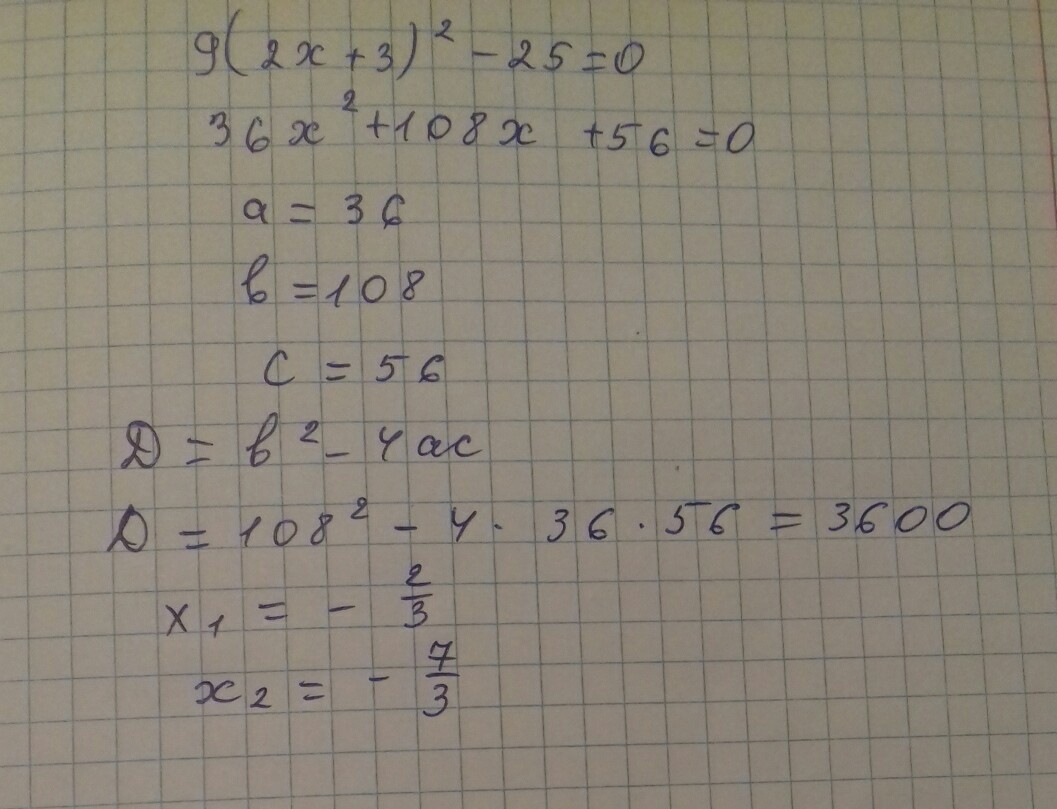 9(2x+3)² - 25 = 0
36x² + 108x + 56 = 0
a = 36
b = 108
c = 56
D = b² - 4ac
D = 108² - 4 · 36 · 56 = 3600
x₁ = - 2/3
x₂ = - 7/3